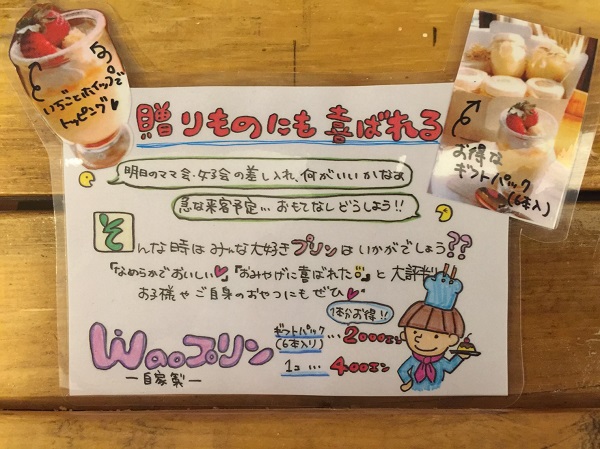 いちごとホイップで
トッピング♥
贈りものにも喜ばれる
お得な
ギフトパック
(6本入)
明日のママ会・女子会の差し入れ、何がいいかなぁ
急な来客予定… おもてなしどうしよう!!
そんな時はみんな大好きプリンはいかがでしょう??
「なめらかでおいしい♥」「おみやげに喜ばれた」と大評判!
お子様やご自身のおやつにもぜひ♥
1本分お得!!
Waoプリン
—自家製—
ギフトパック
(6本入り) … 2000エン
1コ … 400エン